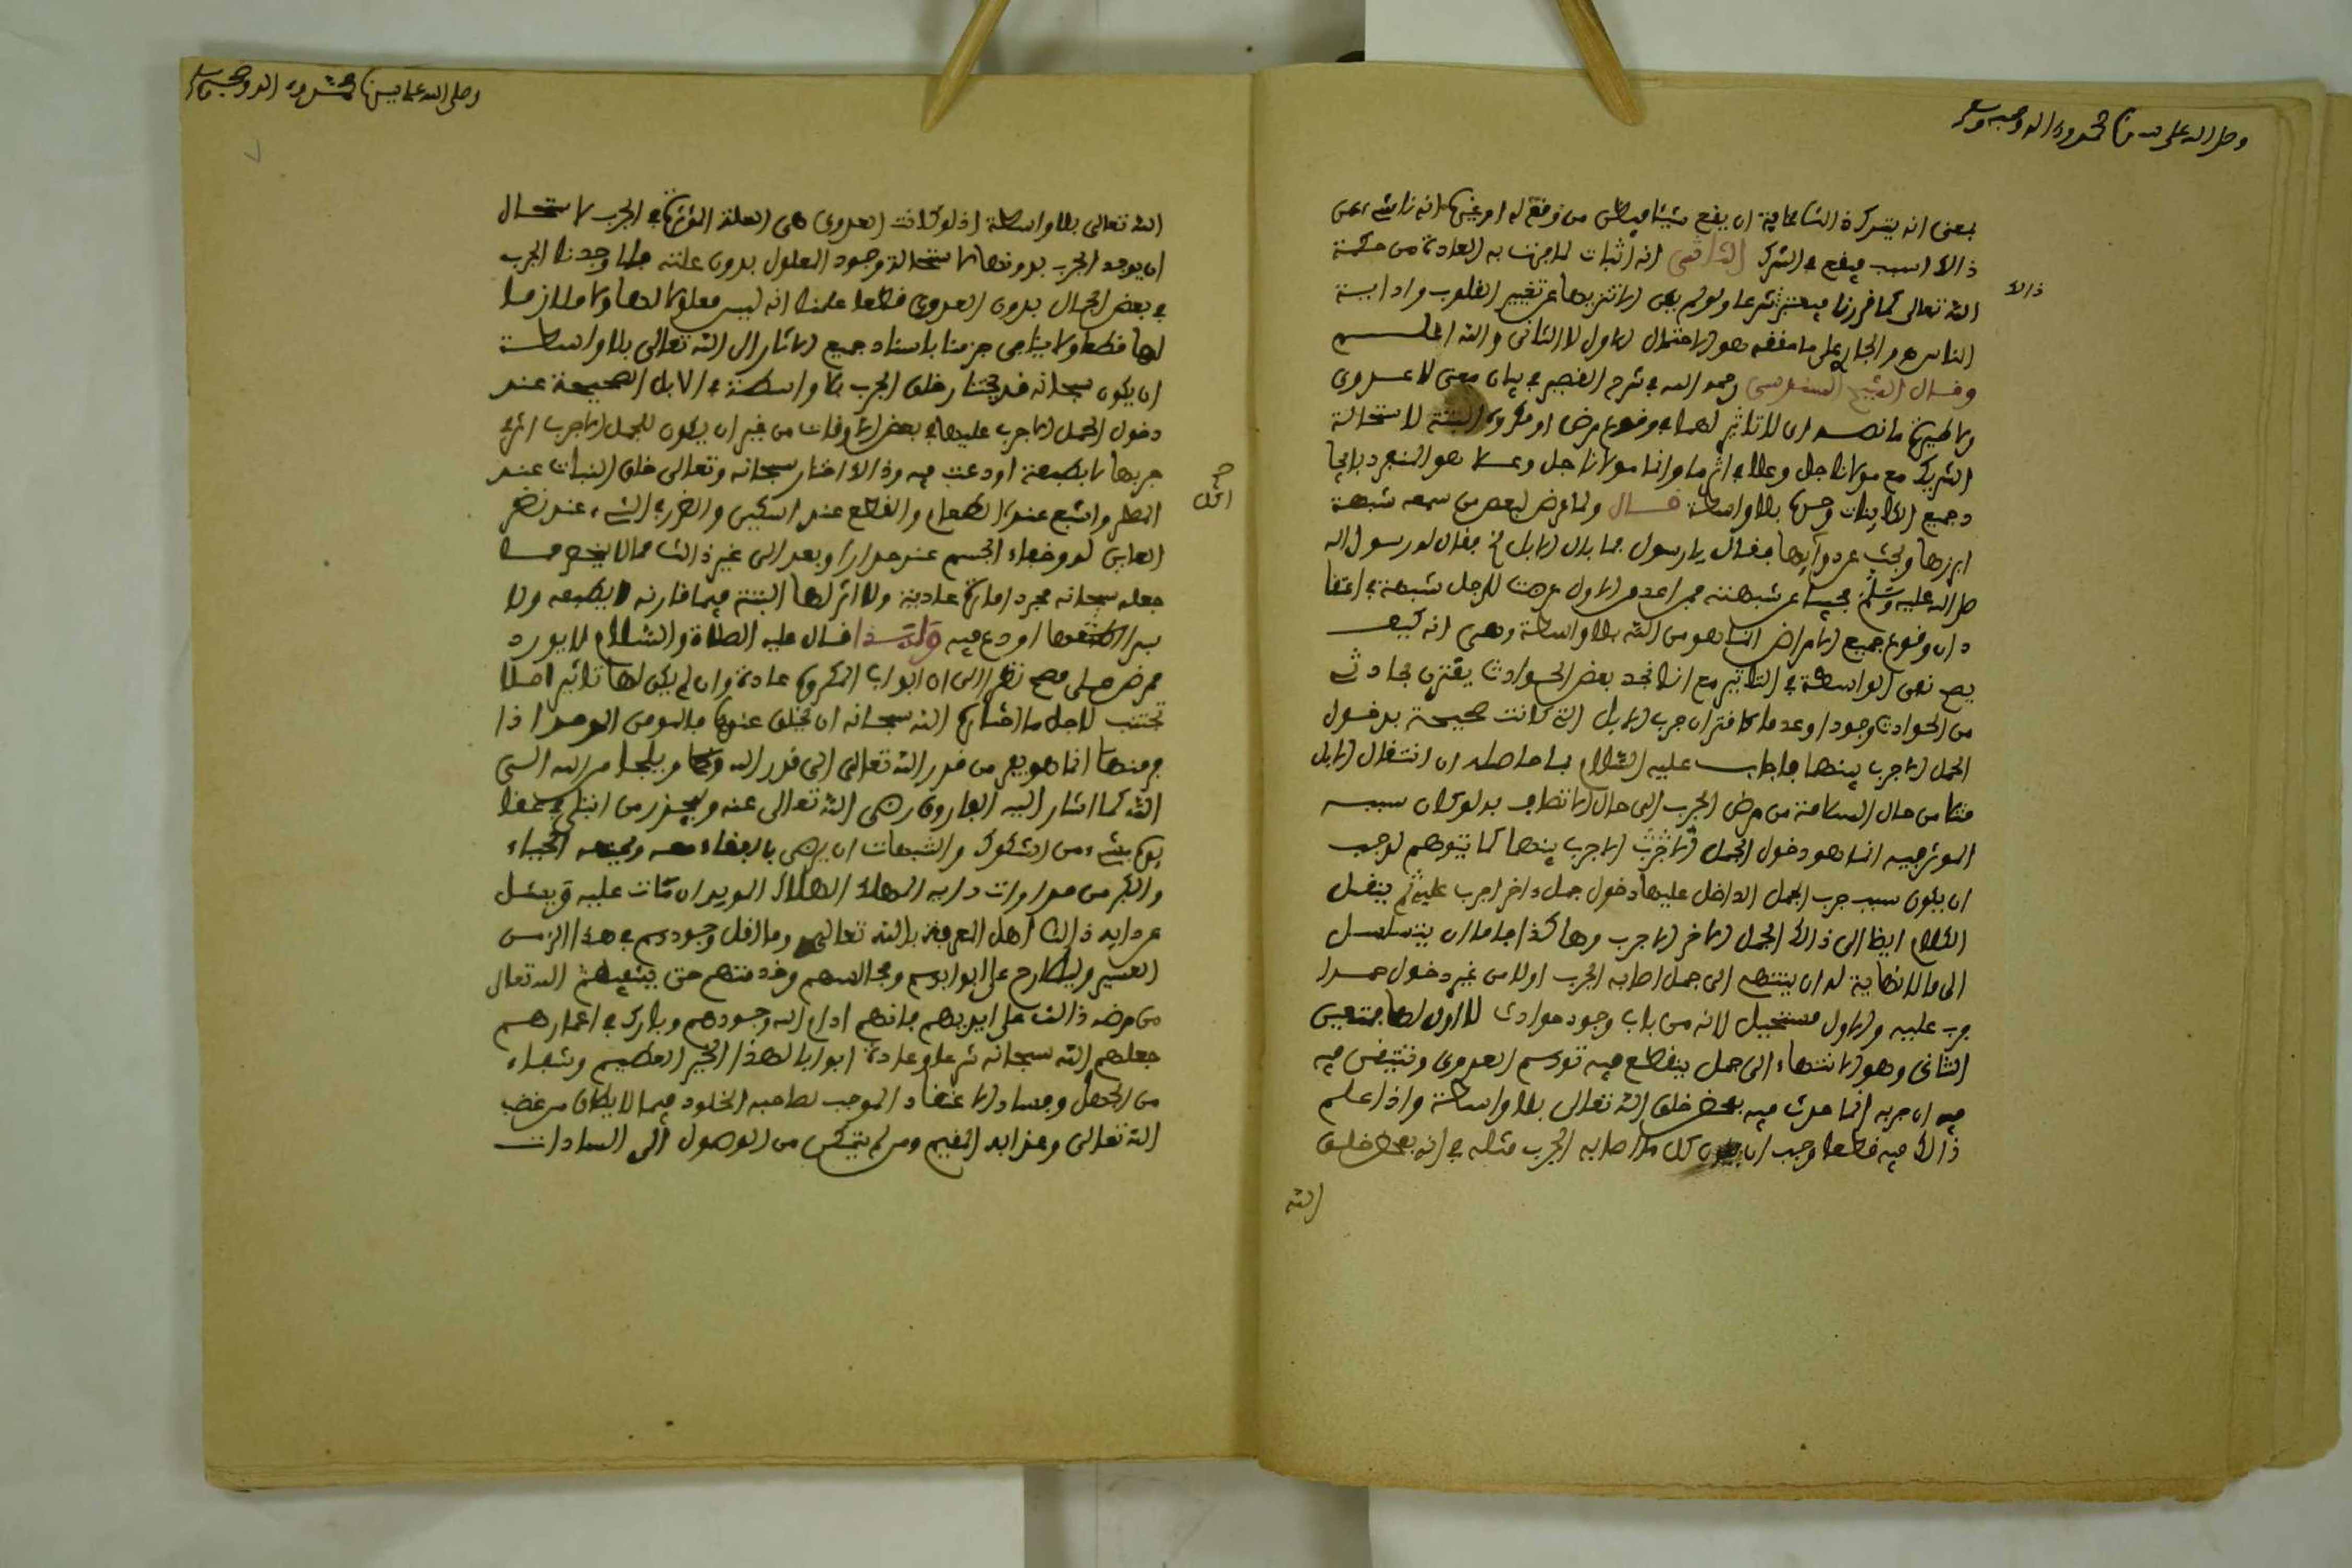 وصلى الله على سيدنا محمد وءاله وصحبه وسلم
بمعنى انه يترك
ذالك السبب فيقع في الشرك الثاني انه اثبات لما جرت به العادة من حكمة
ذالك
الله تعالى كما قررنا
الناس هو الجار على ما فقه هو الاحتمال الاول لا الثاني والله اعلم
وقال الشيخ السنوسي رحمه الله في شرح القصير في بيان معنى لا عدوى
ولا طيرة ما نصه ان لا تاثير لهما في وقوع مرض او مكروه البتة لاستحالة
الشريك مع مولانا جل وعلا في اثر ما وانما مولانا جل وعلا هو المنفرد بايجا
د جميع الكاينات بلا واسطة قال ولما عرض لبعض من سمعه شبهة
ابرزها فقال يا رسول فما بال الابل فقال له رسول الله
صلى الله عليه وسلم مجيبا عن شبهته فمن اعدى الاول عرضت للرجل شبهة في اعتقا
د ان وقوع جميع الامراض انما هو من الله بلا واسطة وهي انه كيف
يصح نفي الواسطة في التاثير مع انا نجد بعض الحوادث يقترن بحادث
من الحوادث وجودا وعدما كاقتران جرب الابل التي كانت صحيحة بدخول
الجمل الاجرب بينها فاجاب عليه السلام بما حاصله ان انتقال الابل
مثلا من حال السلامة من مرض الجرب الى حال الاتصاف به لو كان سببه
الموثر فيه انما هو دخول الجمل الاجرب بينها كما يتوهم لوجب
ان يكون سبب جرب الجمل الداخل عليها دخول جمل ءاخر اجرب عليه ثم ينقل
الكلام ايضا الى ذالك الجمل الاخر الاجرب وهاكذا فاما ان يتسلسل
الى ما لا نهاية له او ينتهي الى جمل اصابه الجرب اولا من غير دخول جمل
جرب عليه والاول مستحيل لانه من باب وجود حوادث لا اول لها فتعين
الثاني وهو الانتهاء الى جمل ينقطع فيه توهم العدوى وتيقن فيه
فيه ان جربه انما حدث فيه بمحض خلق الله تعالى بلا واسطة واذا علم
ذالك فيه قطعا وجب ان يكون كل ما اصابه الجرب مثله في انه بمحض خلق
الله
وصلى الله على سيدنا محمد وءاله وصحبه وسلم
الله تعالى بلا واسطة اذ لو كانت العدوى هي العلة الموثرة في الجرب لاستحال
ان يوجد الجرب بدونها لاستحالة وجود المعلول بدون علته فلما وجدنا الجرب
في بعض الجمال بدون العدوى قطعا علمنا انه ليس معلولا لها ولا ملازما
لها قطعا ولا ينافي جزمنا باسناد جميع الاثار الى الله تعالى بلا واسطة
ان يكون سبحانه قد يختار خلق الجرب بلا واسطة في الابل الصحيحة عند
دخول الجمل الاجرب عليها في بعض الاوقات من غير ان يكون للجمل الاجرب اثر في
جربها لا بطبيعة اودعت فيه وذالك اختار سبحانه وتعالى خلق النبات عند
المطر والشبع عند الطعام والقطع عند السكين والضر في الشيء عند نظر
صح
اكل
العاين له ودفاء الجسم عند جدار او بعد الى غير ذالك مما لا ينحصر مما
جعله سبحانه مجرد امارة عادية ولا اثر لها البتة فيما قارنه لا بطبعه ولا
بسر اودع فيه ولهذا قال عليه الصلاة والسلام لا يورد
ممرض على مصح نظرا الى ان ابواب المكروه عادة وان لم يكن لها تاثير اصلا
تجتنب لاجل ما اختار الله سبحانه ان يخلق عندها فالمومن الموحد اذا
فر منها انما هو يفر من قدر الله تعالى الى قدر الله ويلجا من الله الى
الله كما اشار اليه الفاروق رضي الله تعالى عنه وليحذر من ابتلي في عقا
يده بشيء من الشكوك والشبهات ان يرضى بالبقاء معه ويمنعه الحياء
والكبر من مداوات دايه المهلك الهلاك الموبد ان مات عليه وليسئل
عن دايه ذالك اهل المعرفة بالله تعالى وما اقل وجودهم في هذا الزمن
العسير وليطارح على ابوابهم ومجالسهم وخدمتهم حتى يشفيه الله تعالى
من مرضه ذالك على ايديهم فانهم ادام الله وجودهم وبارك في اعمارهم
جعلهم الله سبحانه شرعا وعادة ابوابا لهذا الخير العظيم وشفاء
من الجهل وفساد الاعتقاد الموجب لصاحبه الخلود فيما لا يطاق من غضب
الله تعالى وعذابه المقيم ومن لم يتمكن من الوصول الى السادات